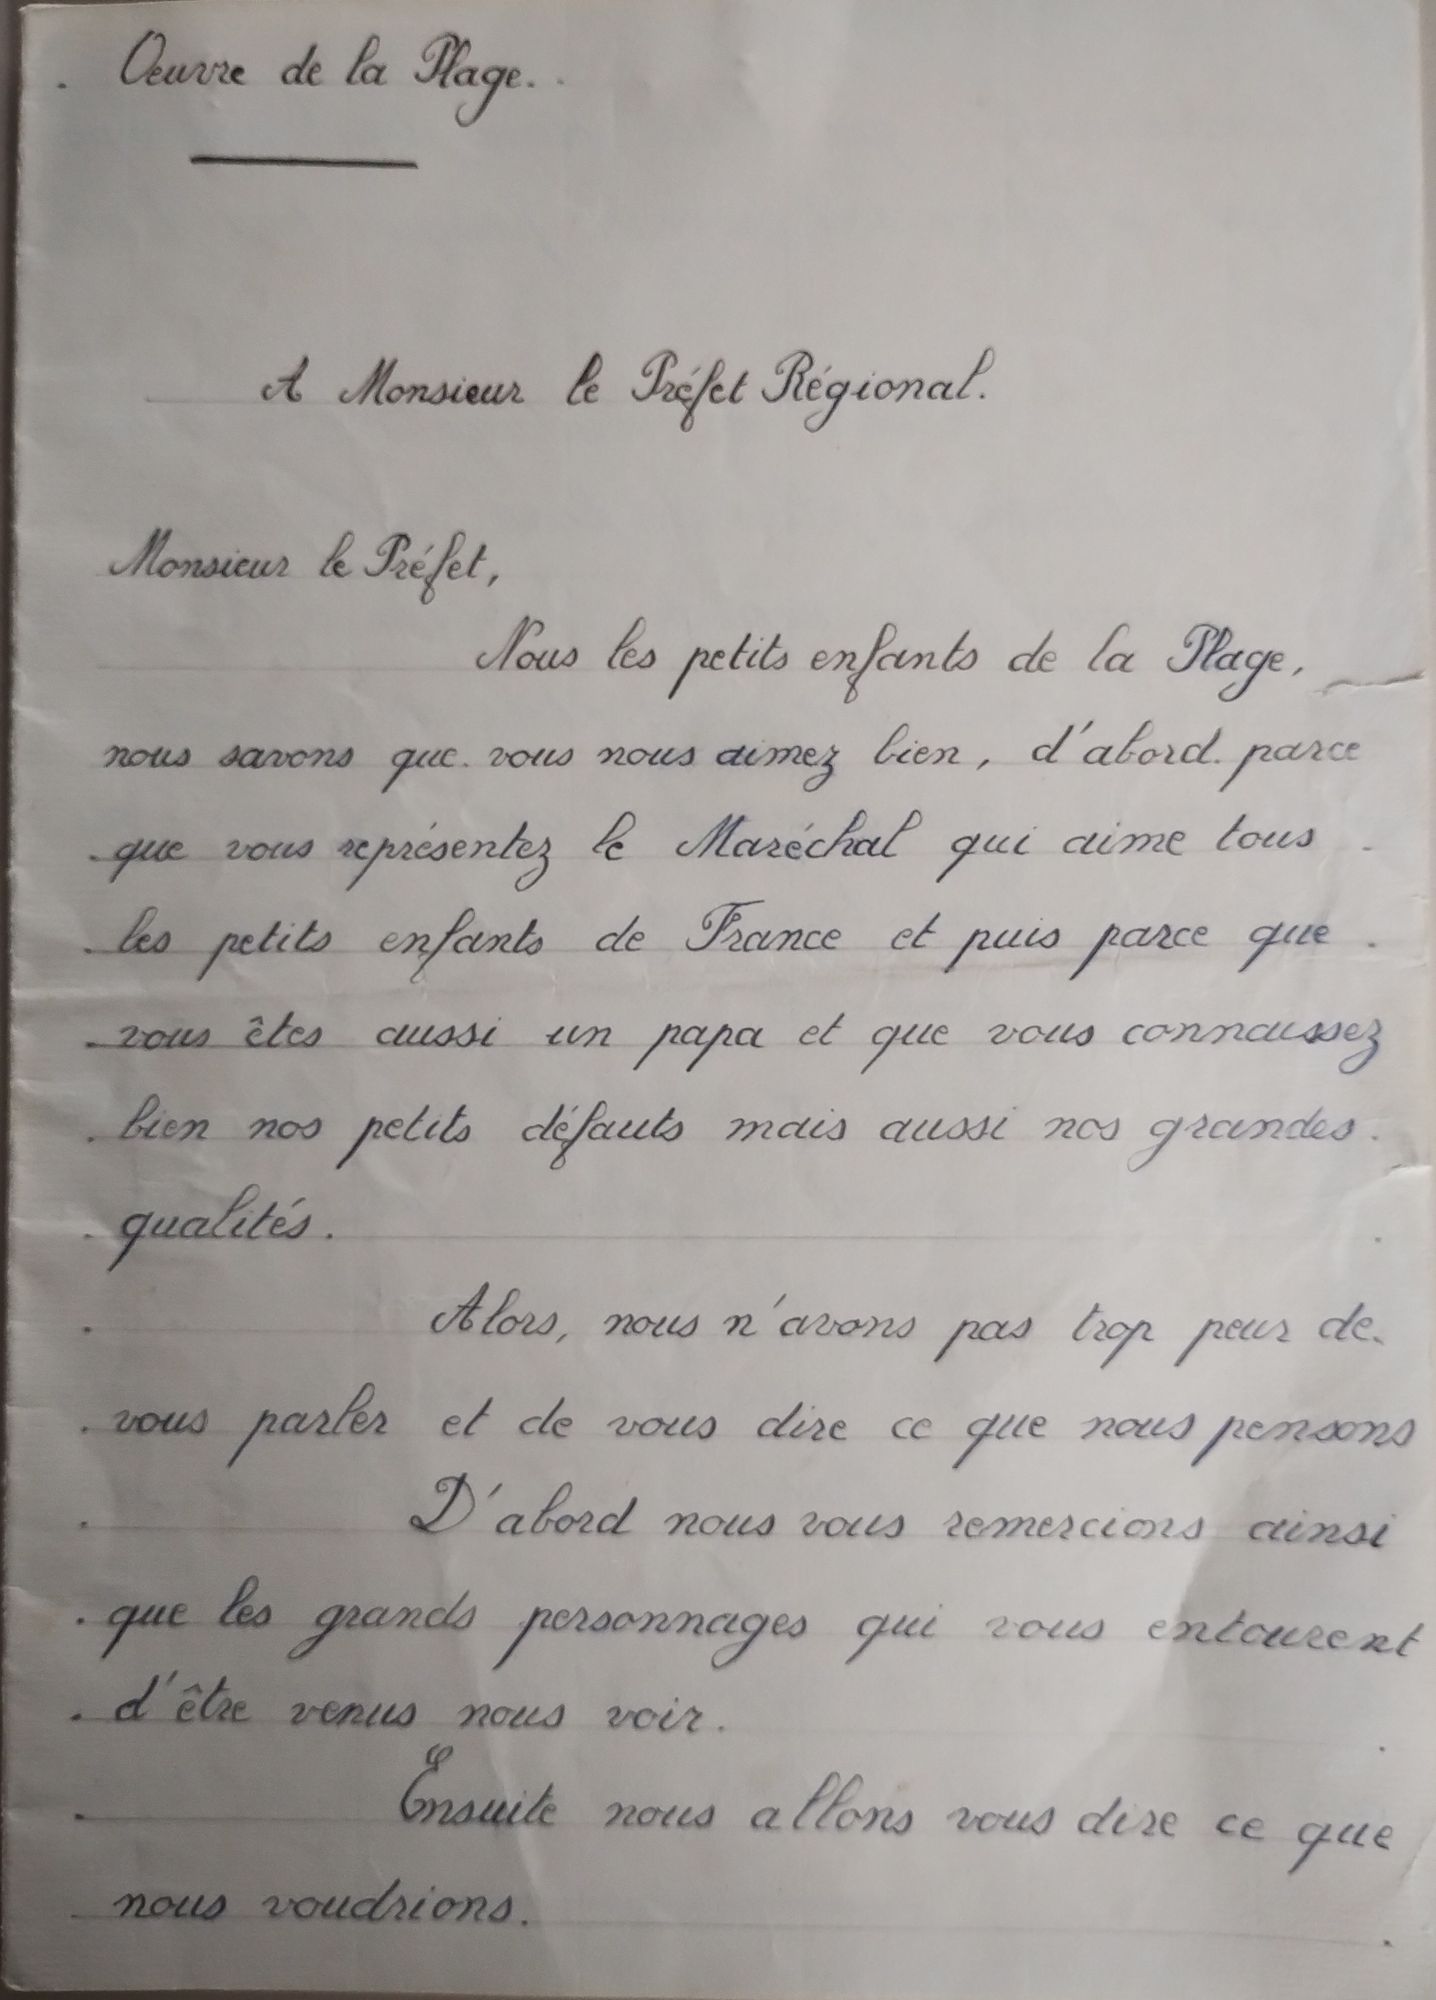 Oeuvre de la Plage.
A Monsieur le Préfet Régional.
Monsieur le Préfet,
Nous les petits enfants de la Plage,
nous savons que vous nous aimez bien, d'abord parce
que vous représentez le Maréchal qui aime tous
les petits enfants de France et puis parce que
vous êtes aussi un papa et que vous connaissez
bien nos petits défauts mais aussi nos grandes
qualités.
Alors, nous n'avons pas trop peur de
vous parler et de vous dire ce que nous pensons
D'abord nous vous remercions ainsi
que les grands personnages qui vous entourent
d'être venus nous voir.
Ensuite nous allons vous dire ce que
nous voudrions.